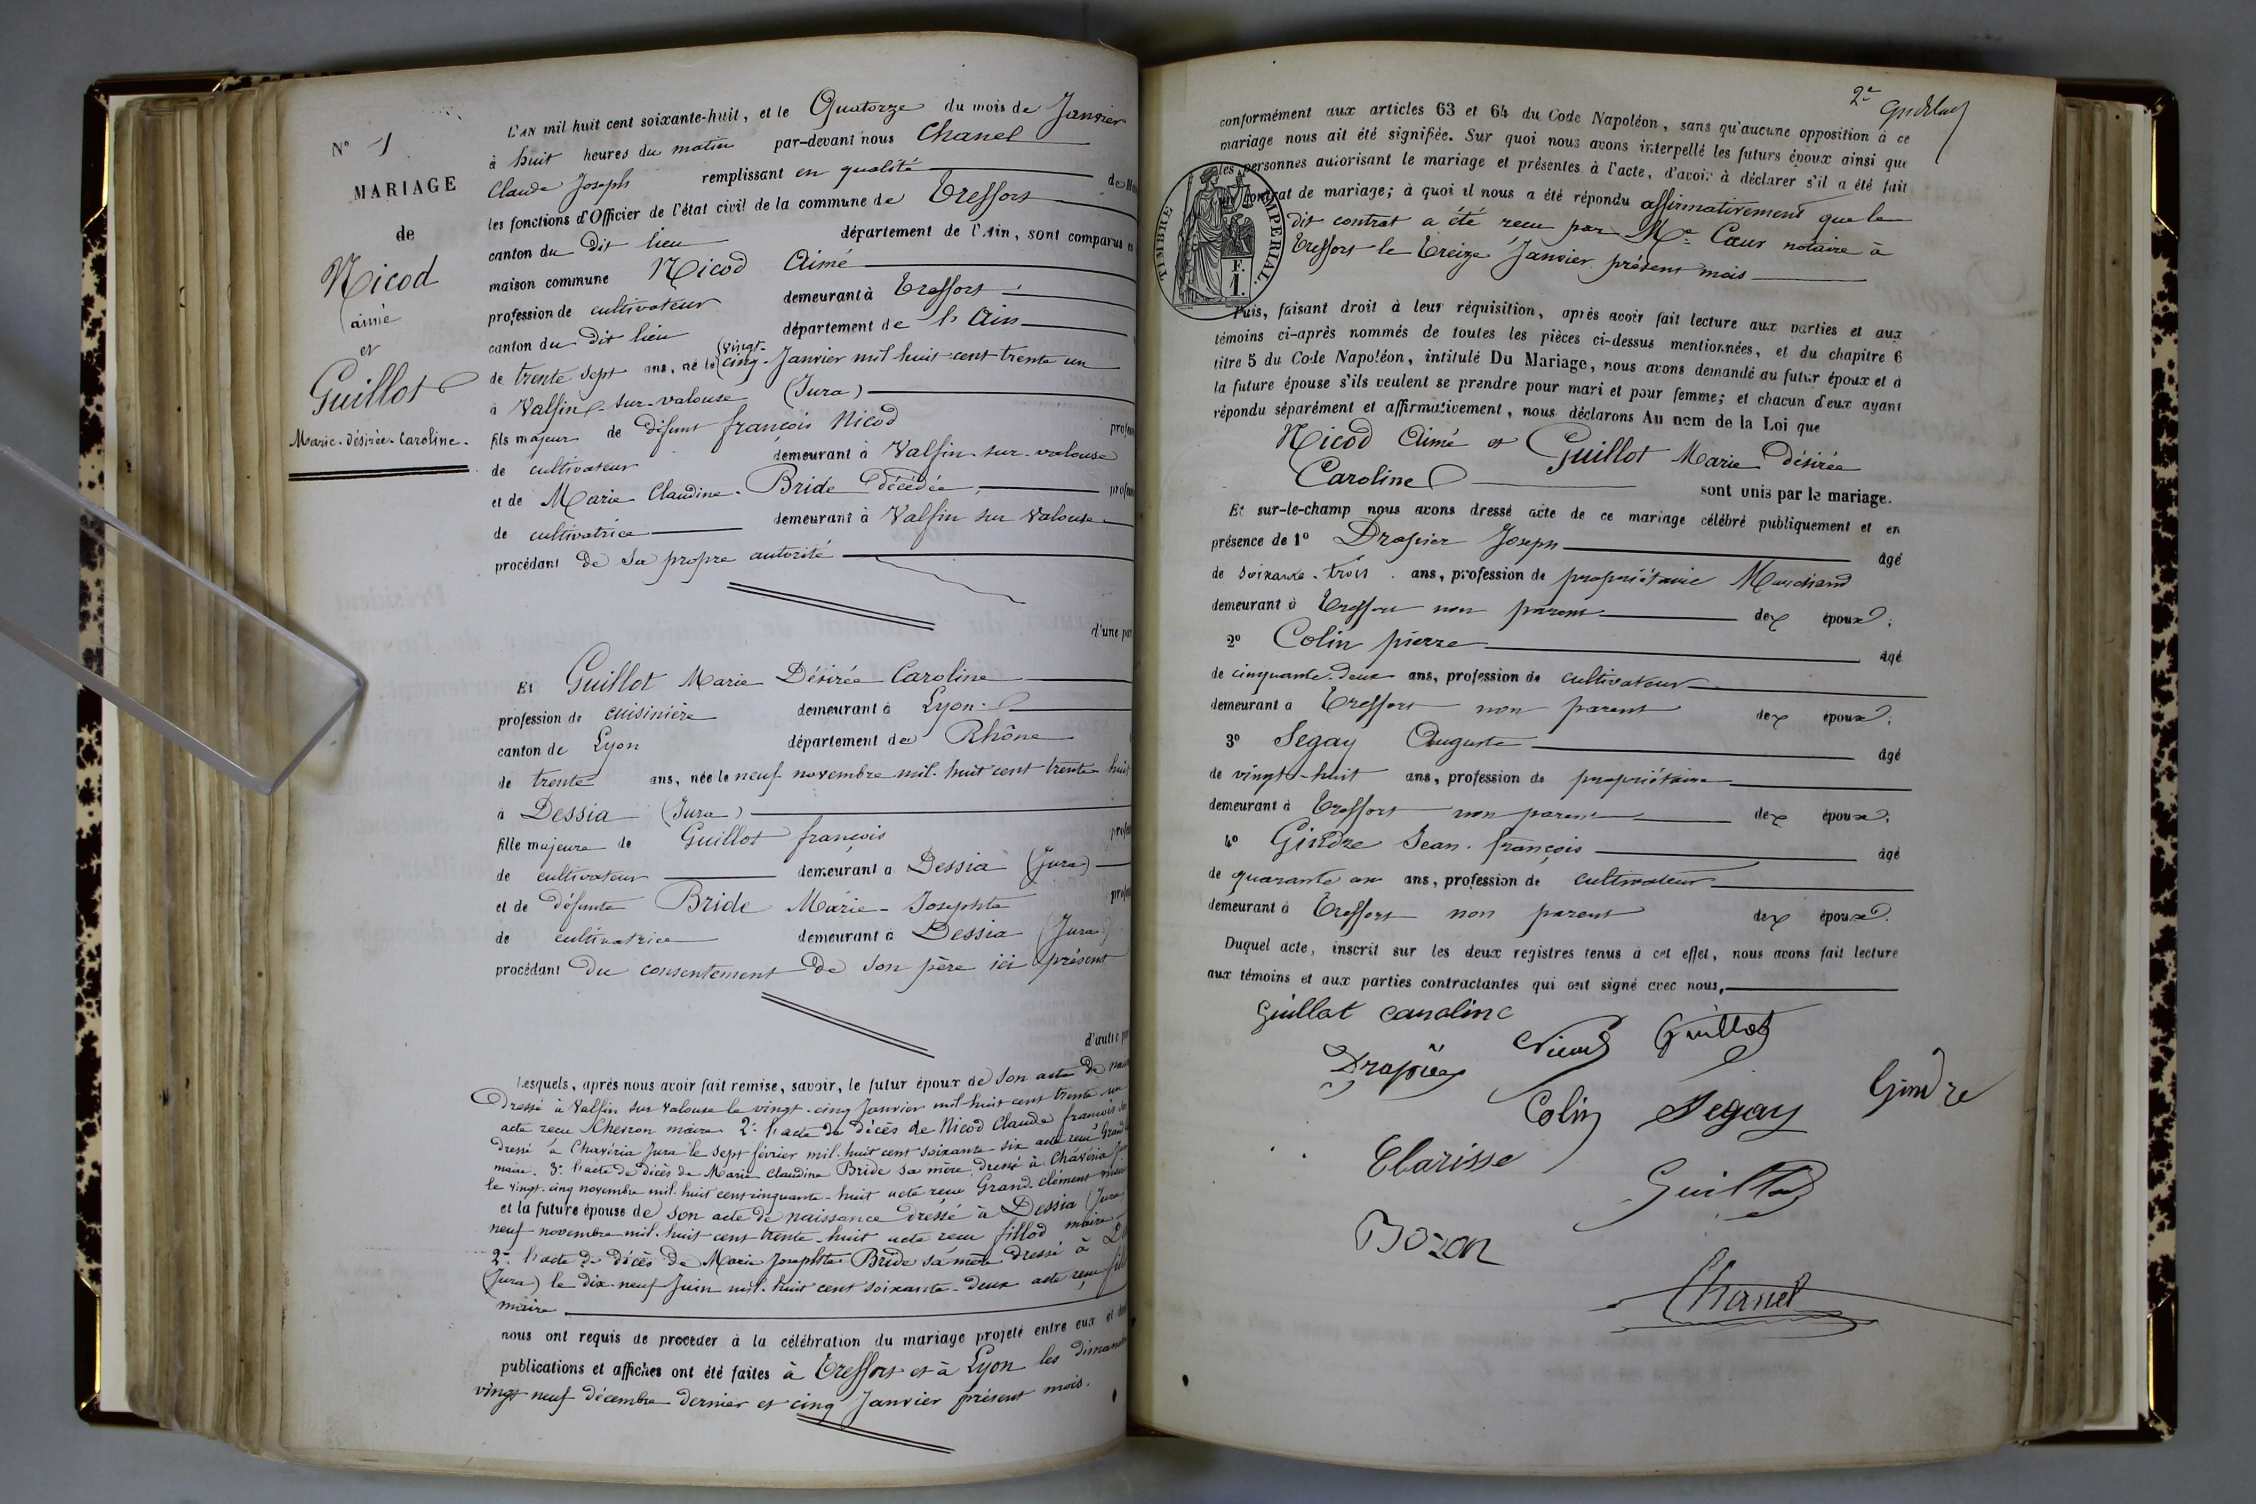 N° 1
MARIAGE
de
Nicod
aimé
et
Guillot
Marie-désirée-Caroline.
L'AN mil huit cent soixante-huit, et le Quatorze du mois de Janvier
à huit heures du matin par-devant nous Chanel
Claude Joseph remplissant en qualité de
les fonctions d'Officier de l'état civil de la commune de Treffort
canton du dit lieu département de l'Ain, sont comparus en
maison commune Nicod Aimé
profession de cultivateur demeurant à Treffort
canton du dit lieu département de l'Ain
de trente sept ans, né le vingt-cinq Janvier mil huit cent trente un
à Valfin-sur-valouse (Jura)
fils majeur de défunt françois Nicod
de cultivateur demeurant à Valfin-sur-valouse
et de Marie Claudine Bride décédée,
de cultivatrice demeurant à Valfin sur Valouse
procédant de sa propre autorité
d'une part
Et Guillot Marie Désirée Caroline
profession de cuisinière demeurant à Lyon
canton de Lyon département de Rhône
de trente ans, née le neuf novembre mil-huit cent trente huit
à Dessia (Jura)
fille majeure de Guillot françois
de cultivateur demeurant à Dessia (Jura)
et de défunte Bride Marie-Josephte
de cultivatrice demeurant à Dessia (Jura)
procédant du consentement de son père ici présent
d'autre part
Lesquels, après nous avoir fait remise, savoir, le futur époux de son acte de
Dressé à Valfin sur valouse le vingt-cinq Janvier mil huit cent trente un
acte reçu maire 2° l'acte de décès de Nicod Claude françois
dressé à Chavéria Jura le sept février mil-huit cent soixante six acte reçu Grand
maire. 3° l'acte de décès de Marie Claudine Bride sa mère dressé à Chavéria
le vingt-cinq novembre mil-huit cent cinquante-huit acte reçu Grand-clément
et la future épouse de son acte de naissance dressé à Dessia (Jura)
neuf novembre mil-huit cent trente-huit acte reçu fillod maire
2° l'acte de décès de Marie Josephte Bride sa mère dressé à
(Jura) le dix-neuf Juin mil-huit cent soixante-deux acte reçu
maire
nous ont requis de procéder à la célébration du mariage projeté entre eux et
publications et affiches ont été faites à Treffort et à Lyon les
vingt neuf décembre dernier et cinq Janvier présent mois.
2e
conformément aux articles 63 et 64 du Code Napoléon, sans qu'aucune opposition à ce
mariage nous ait été signifiée. Sur quoi nous avons interpellé les futurs époux ainsi que
les personnes autorisant le mariage et présentes à l'acte, d'avoir à déclarer s'il a été fait
un contrat de mariage; à quoi il nous a été répondu affirmativement que le
dit contrat a été reçu par Me Cœur notaire à
Treffort le treize Janvier présent mois
TIMBRE IMPÉRIAL.
1 F.
Puis, faisant droit à leur réquisition, après avoir fait lecture aux parties et aux
témoins ci-après nommés de toutes les pièces ci-dessus mentionnées, et du chapitre 6
titre 5 du Code Napoléon, intitulé Du Mariage, nous avons demandé au futur époux et à
la future épouse s'ils veulent se prendre pour mari et pour femme; et chacun d'eux ayant
répondu séparément et affirmativement, nous déclarons Au nom de la Loi que
Nicod Aimé et Guillot Marie Désirée
Caroline sont unis par le mariage.
Et sur-le-champ nous avons dressé acte de ce mariage célébré publiquement et en
présence de 1° Drapier Joseph âgé
de soixante-trois ans, profession de propriétaire Marchand
demeurant à Treffort non parent des époux;
2° Colin pierre âgé
de cinquante-deux ans, profession de cultivateur
demeurant à Treffort non parent des époux;
3° Segay Auguste âgé
de vingt-huit ans, profession de propriétaire
demeurant à Treffort non parent des époux;
4° Gindre Jean-françois âgé
de quarante ans, profession de cultivateur
demeurant à Treffort non parent des époux.
Duquel acte, inscrit sur les deux registres tenus à cet effet, nous avons fait lecture
aux témoins et aux parties contractantes qui ont signé avec nous,
Guillot caroline
Nicod Guillot
Drapier
Colin Segay Gindre
Clarisse
Guillod
Bozon
Chanel